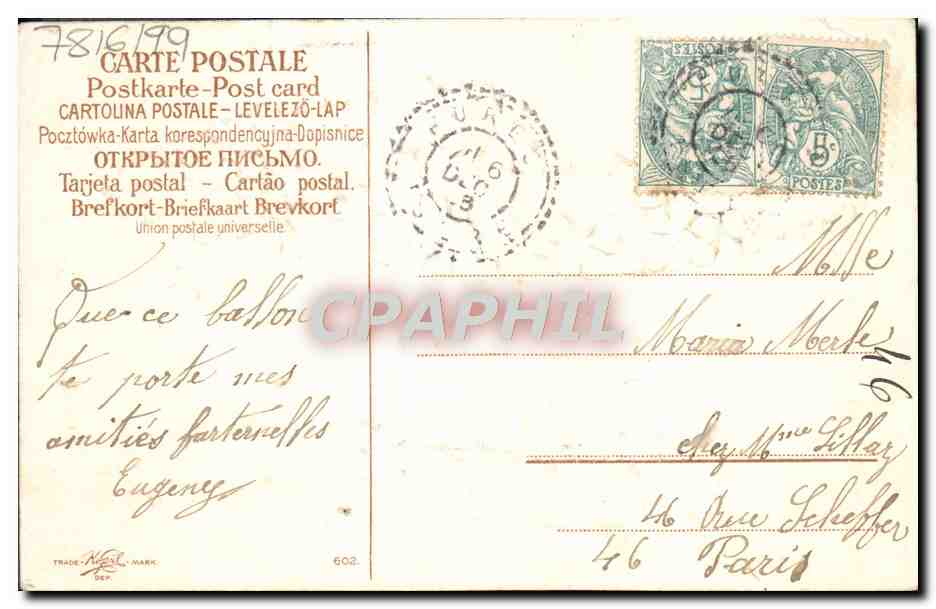 7816/99
CARTE POSTALE
Postkarte-Post card
CARTOLINA POSTALE-LEVELEZŐ-LAP
Pocztówka-Karta korespondencyjna-Dopisnice
ОТКРЫТОЕ ПИСЬМО.
Tarjeta postal - Cartão postal.
Brefkort-Briefkaart Brevkort
Union postale universelle
POSTES
5c
POSTES
Que ce ballon
te porte mes
amitiés farternelles
Eugeny
Mlle
Maria Merle
chez Mme Lillaz
46 Rue Scheffer
46 Paris
46
CPAPHIL
TRADE - Kopal - MARK
DEP.
602.